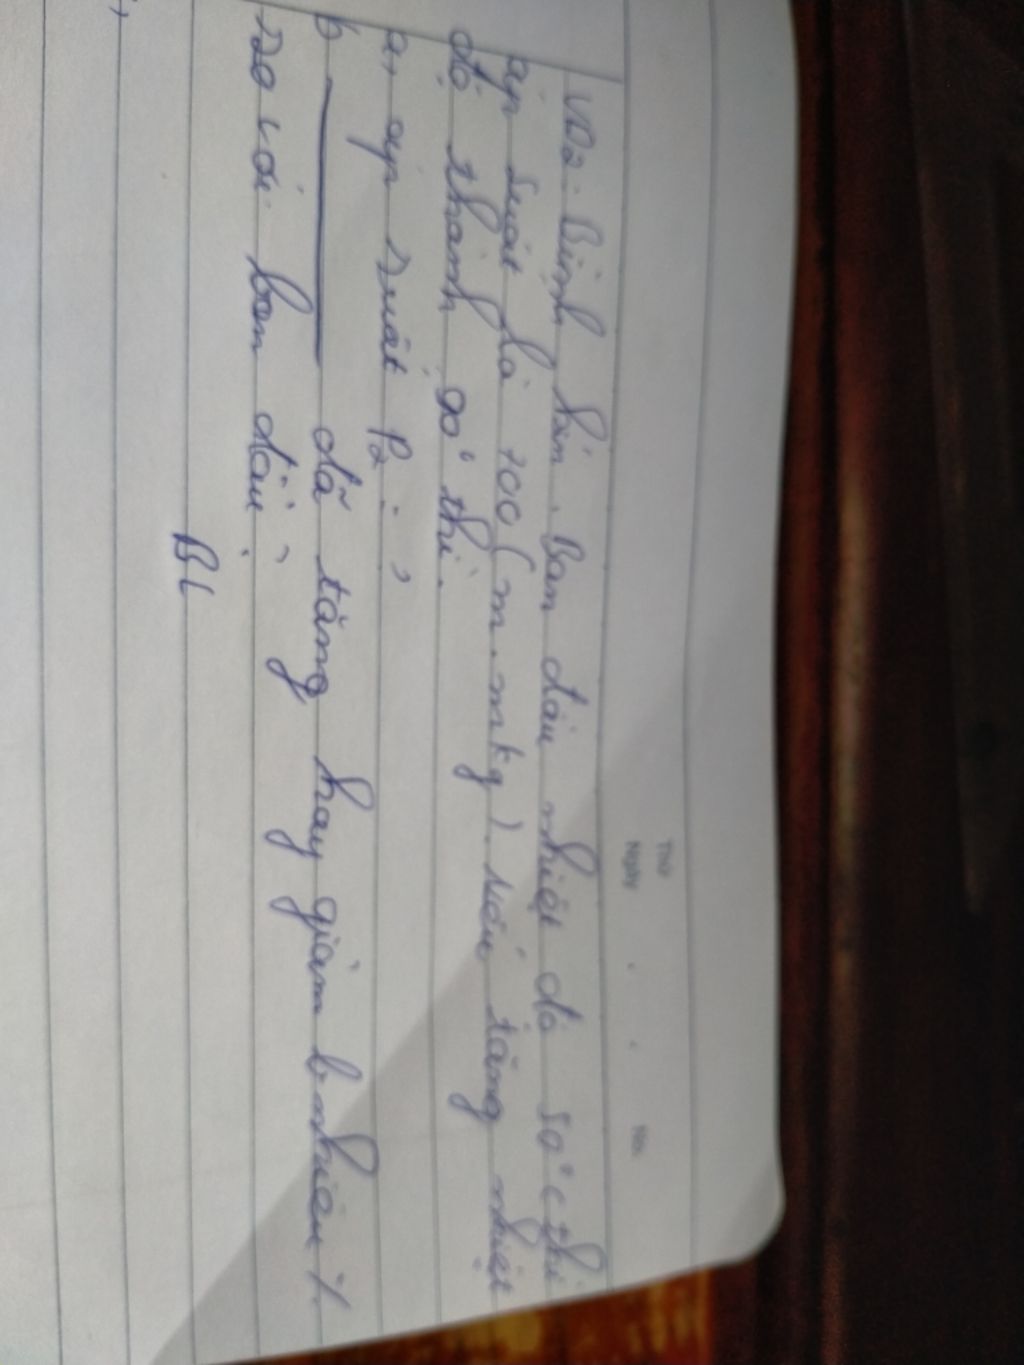 Thứ
Ngày . . No.
VD2: Bình kín. Ban đầu nhiệt độ 50°C thì
áp suất là 700 (m.mkg). Nếu tăng nhiệt
độ thành 90° thì.
a, áp suất P2 = ?
b ——— đã tăng hay giảm b.nhiêu %
so với ban đầu ?
BL